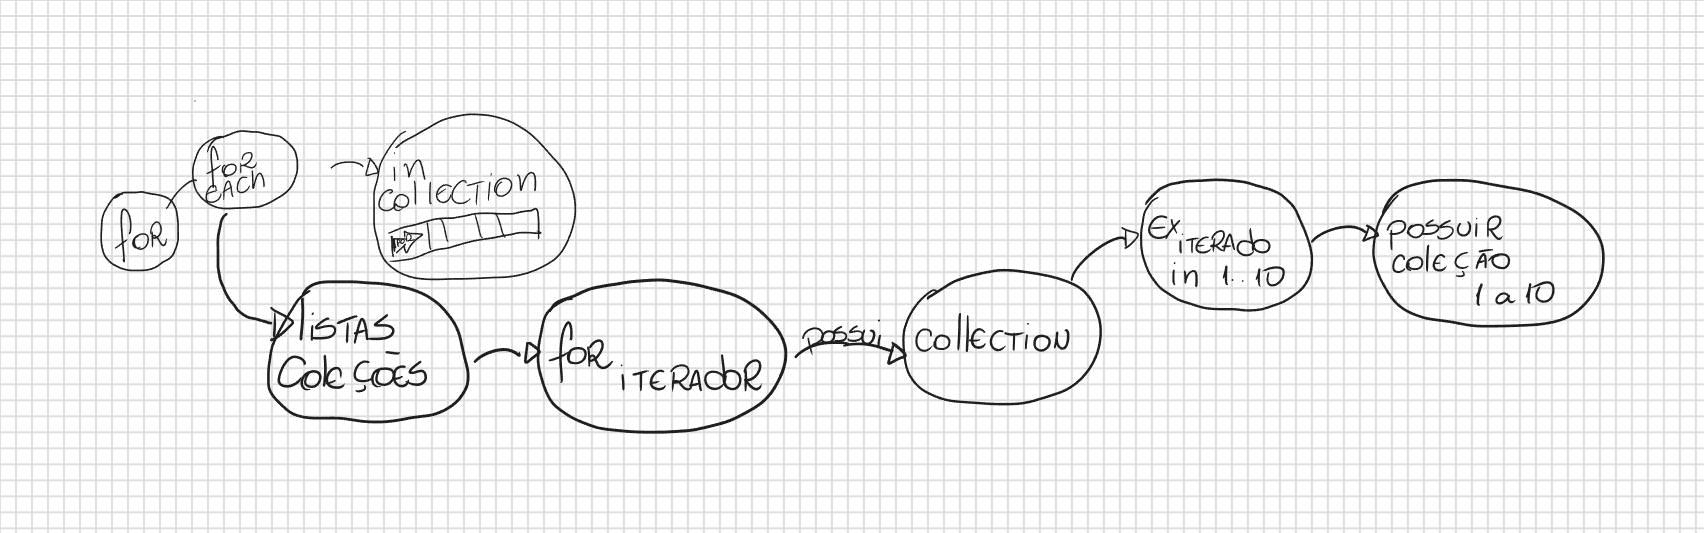 for
for
each
in
collection
listas
coleções
for
iterador
possui
collection
Ex
iterado
in 1..10
possuir
coleção
1 a 10